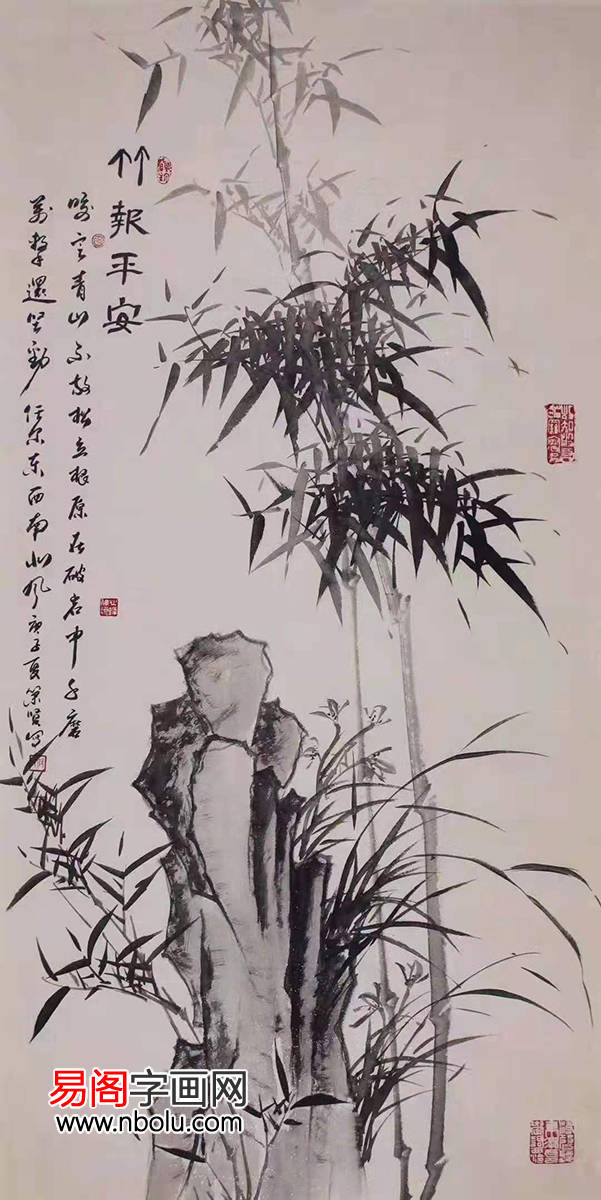 竹報平安
咬定青山不放松立根原在破岩中千磨
萬擊還坚勁任尔东西南北风庚子夏荣贤写
易阁字画网
www.nbolu.com